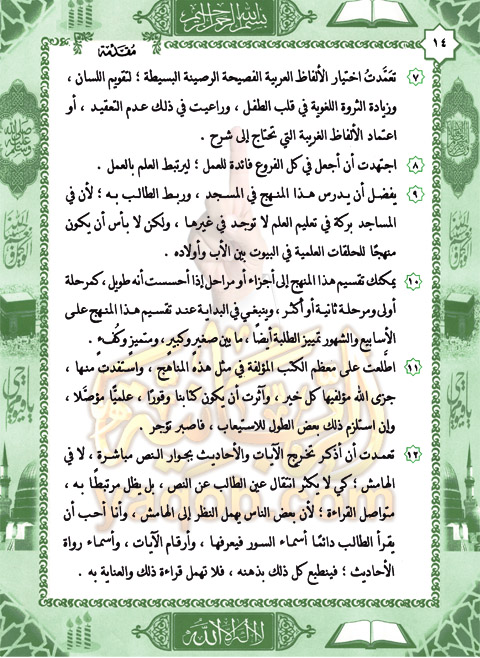 بسم الله الرحمن الرحيم
١٤
مقدمة
٧ تعمَّدتُ اختيار الألفاظ العربية الفصيحة الرصينة البسيطة ؛ لتقويم اللسان ،
وزيادة الثروة اللغوية في قلب الطفل ، وراعيت في ذلك عدم التعقيد ، أو
اعتماد الألفاظ الغريبة التي تحتاج إلى شرح .
٨ اجتهدت أن أجعل في كل الفروع فائدة للعمل ؛ ليرتبط العلم بالعمل .
٩ يفضل أن يدرس هذا المنهج في المسجد ، وربط الطالب به ؛ لأن في
المساجد بركة في تعليم العلم لا توجد في غيرها ، ولكن لا بأس أن يكون
منهجًا للحلقات العلمية في البيوت بين الأب وأولاده .
١٠ يمكنك تقسيم هذا المنهج إلى أجزاء أو مراحل إذا أحسست أنه طويل ، كمرحلة
أولى ومرحلة ثانية أو أكثر ، وينبغي في البداية عند تقسيم هذا المنهج على
الأسابيع والشهور تمييز الطلبة أيضًا ، ما بين صغيرٍ وكبيرٍ ، ومتميزٍ وكُفءٍ .
١١ اطَّلعت على معظم الكتب المؤلفة في مثل هذه المناهج ، واستفدت منها ،
جزى الله مؤلفيها كل خير ، وآثرت أن يكون كتابنا وقورًا ، علميًّا مؤصَّلا ،
وإن استلزم ذلك بعض الطول للاستيعاب ، فاصبر تؤجر .
١٢ تعمدت أن أذكر تخريج الآيات والأحاديث بجوار النص مباشرة ، لا في
الهامش ؛ كي لا يكثر انتقال عين الطالب عن النص ، بل يظل مرتبطًا به ،
متواصل القراءة ؛ لأن بعض الناس يهمل النظر إلى الهامش ، وأنا أحب أن
يقرأ الطالب دائمًا أسماء السور فيعرفها ، وأرقام الآيات ، وأسماء رواة
الأحاديث ؛ فينطبع كل ذلك بذهنه ، فلا تهمل قراءة ذلك والعناية به .
لا إله إلا الله